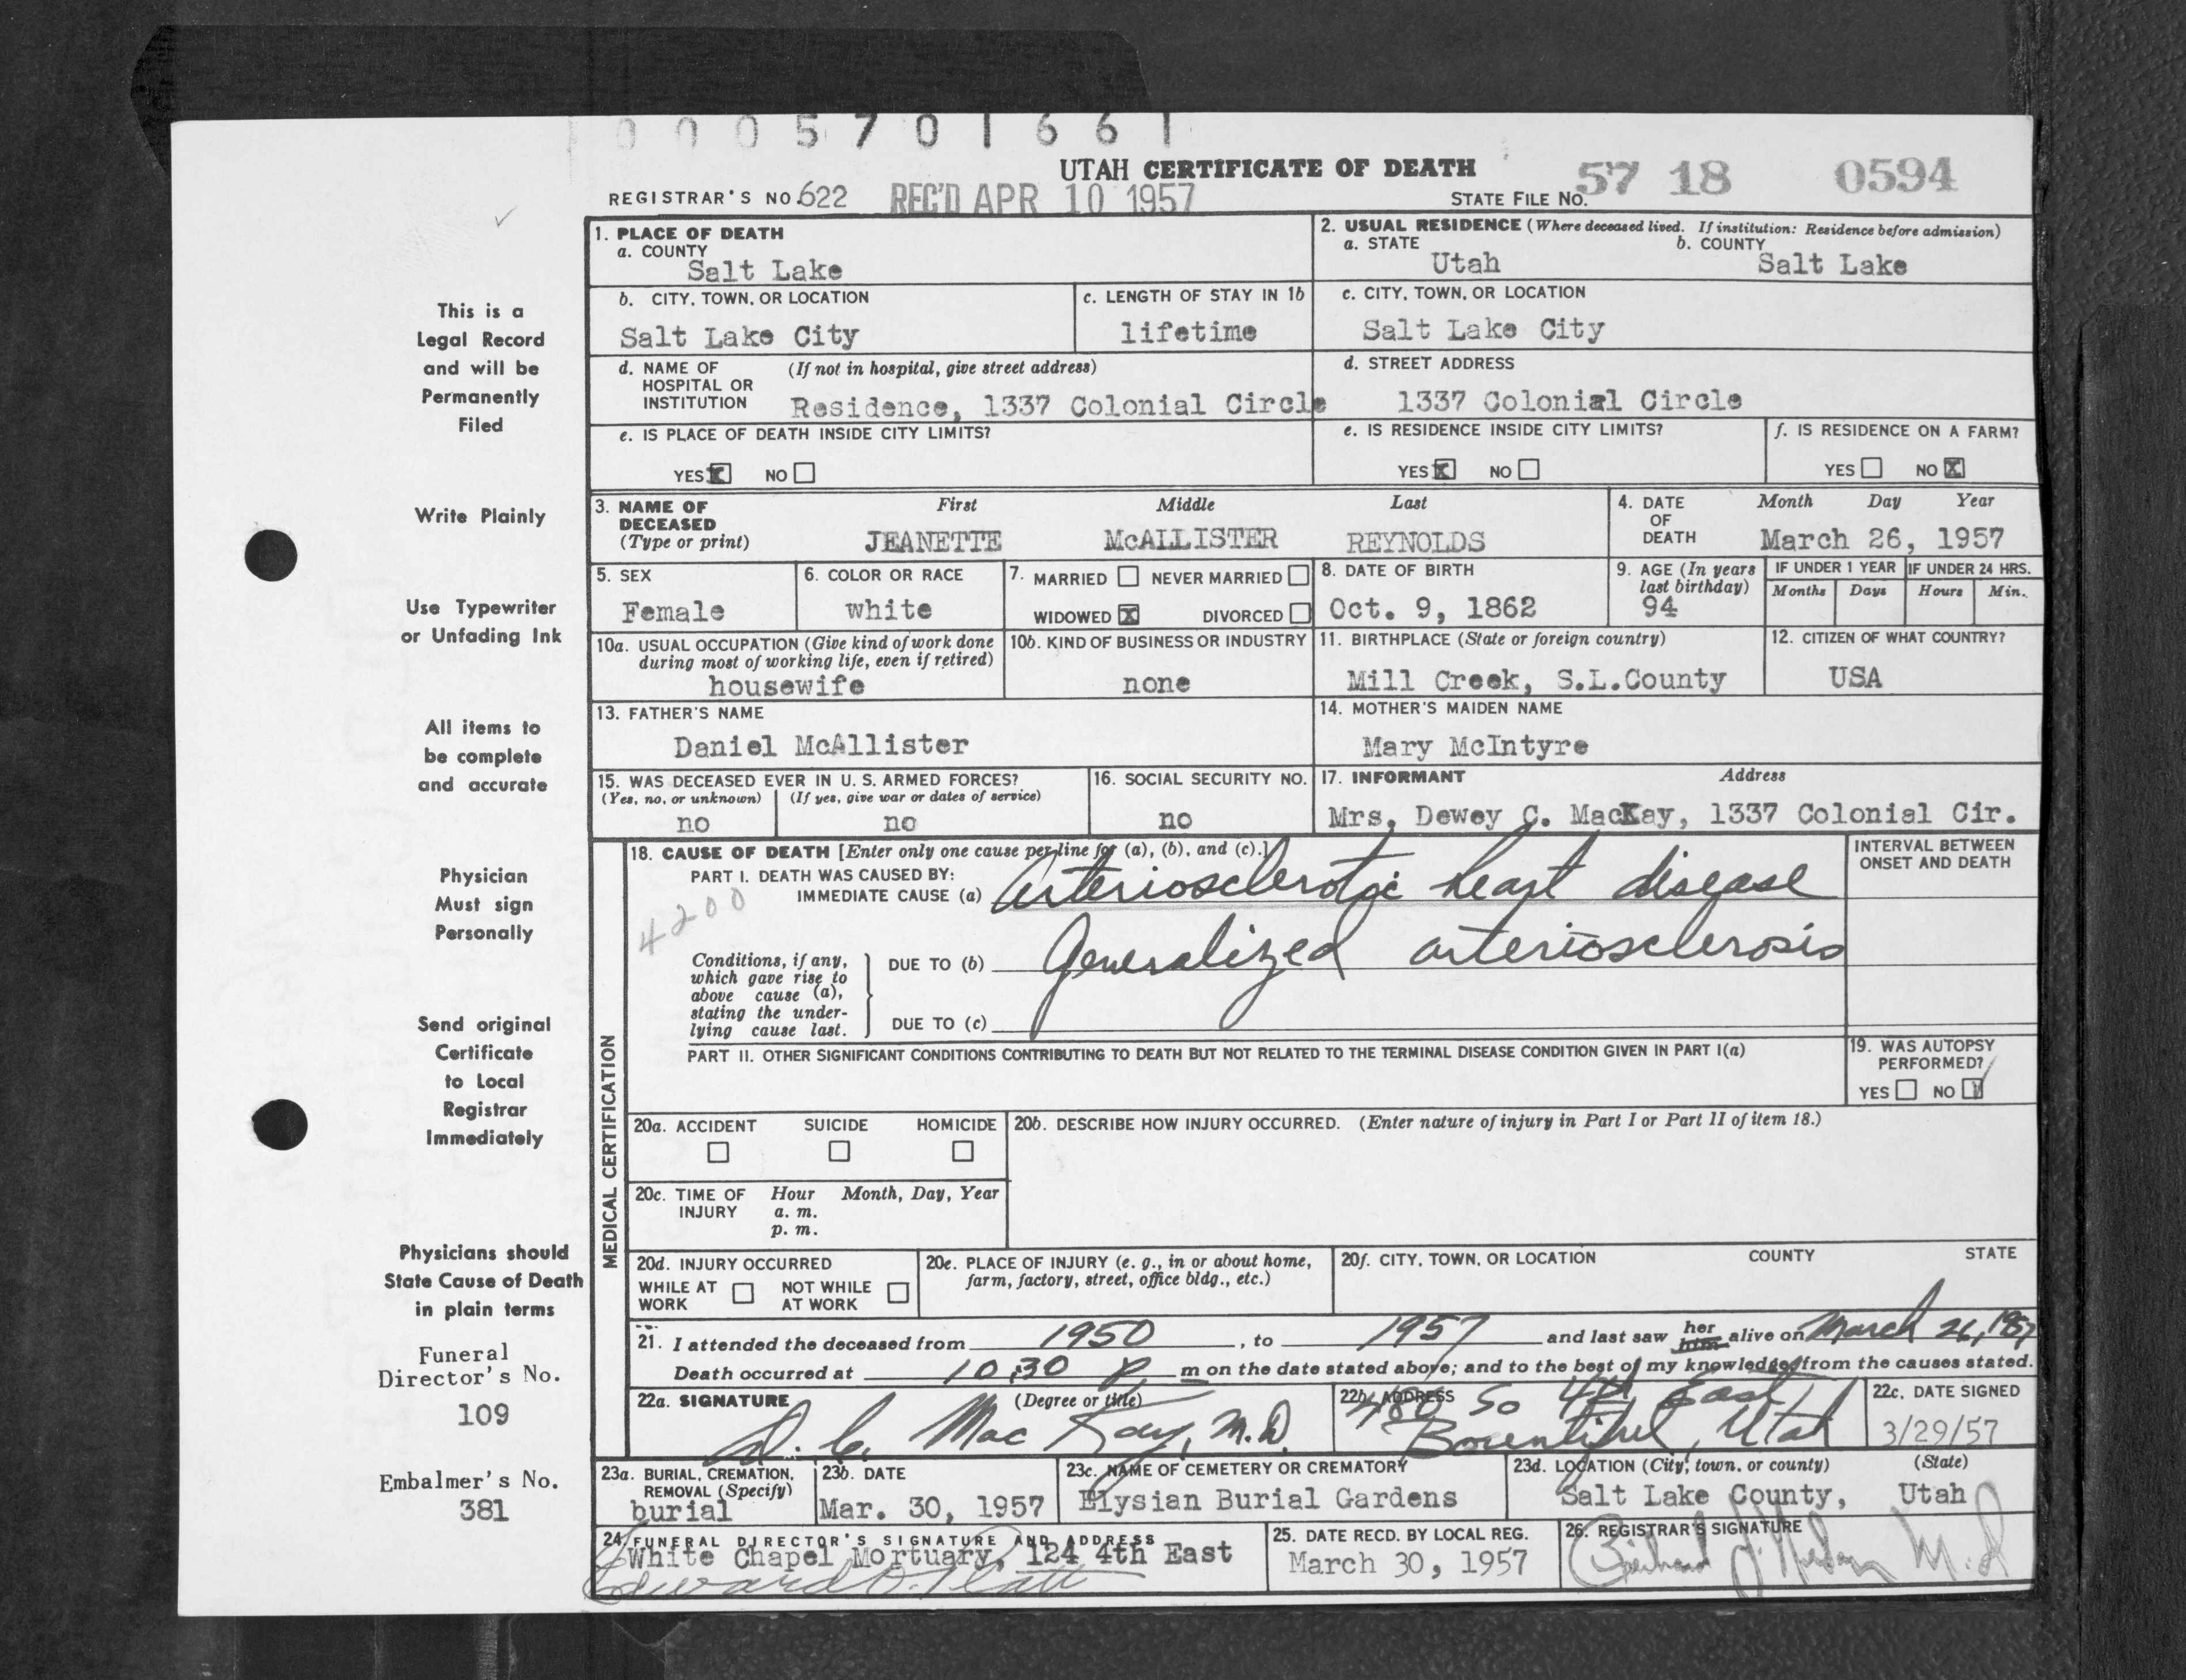 0005701661
UTAH CERTIFICATE OF DEATH
REGISTRAR'S NO. 622 REC'D APR 10 1957 STATE FILE NO. 57 18 0594
1. PLACE OF DEATH
a. COUNTY
Salt Lake
2. USUAL RESIDENCE (Where deceased lived. If institution: Residence before admission)
a. STATE b. COUNTY
Utah Salt Lake
b. CITY, TOWN, OR LOCATION
Salt Lake City
c. LENGTH OF STAY IN 1b
lifetime
c. CITY, TOWN, OR LOCATION
Salt Lake City
d. NAME OF (If not in hospital, give street address)
HOSPITAL OR
INSTITUTION Residence, 1337 Colonial Circle
d. STREET ADDRESS
1337 Colonial Circle
e. IS PLACE OF DEATH INSIDE CITY LIMITS?
YES X NO
e. IS RESIDENCE INSIDE CITY LIMITS?
YES X NO
f. IS RESIDENCE ON A FARM?
YES NO X
3. NAME OF First Middle Last
DECEASED
(Type or print) JEANETTE McALLISTER REYNOLDS
4. DATE Month Day Year
OF
DEATH March 26, 1957
5. SEX
Female
6. COLOR OR RACE
white
7. MARRIED NEVER MARRIED
WIDOWED X DIVORCED
8. DATE OF BIRTH
Oct. 9, 1862
9. AGE (In years
last birthday)
94
IF UNDER 1 YEAR IF UNDER 24 HRS.
Months Days Hours Min.
10a. USUAL OCCUPATION (Give kind of work done
during most of working life, even if retired)
housewife
10b. KIND OF BUSINESS OR INDUSTRY
none
11. BIRTHPLACE (State or foreign country)
Mill Creek, S.L.County
12. CITIZEN OF WHAT COUNTRY?
USA
13. FATHER'S NAME
Daniel McAllister
14. MOTHER'S MAIDEN NAME
Mary McIntyre
15. WAS DECEASED EVER IN U. S. ARMED FORCES?
(Yes, no, or unknown) (If yes, give war or dates of service)
no no
16. SOCIAL SECURITY NO.
no
17. INFORMANT Address
Mrs. Dewey C. MacKay, 1337 Colonial Cir.
MEDICAL CERTIFICATION
18. CAUSE OF DEATH [Enter only one cause per line for (a), (b), and (c).]
PART I. DEATH WAS CAUSED BY:
IMMEDIATE CAUSE (a) Arteriosclerotic heart disease
4200
INTERVAL BETWEEN
ONSET AND DEATH
Conditions, if any,
which gave rise to
above cause (a),
stating the under-
lying cause last.
DUE TO (b) Generalized arteriosclerosis
DUE TO (c)
PART II. OTHER SIGNIFICANT CONDITIONS CONTRIBUTING TO DEATH BUT NOT RELATED TO THE TERMINAL DISEASE CONDITION GIVEN IN PART I(a)
19. WAS AUTOPSY
PERFORMED?
YES NO
20a. ACCIDENT SUICIDE HOMICIDE
20b. DESCRIBE HOW INJURY OCCURRED. (Enter nature of injury in Part I or Part II of item 18.)
20c. TIME OF Hour Month, Day, Year
INJURY a. m.
p. m.
20d. INJURY OCCURRED
WHILE AT NOT WHILE
WORK AT WORK
20e. PLACE OF INJURY (e. g., in or about home,
farm, factory, street, office bldg., etc.)
20f. CITY, TOWN, OR LOCATION COUNTY STATE
21. I attended the deceased from 1950, to 1957 and last saw her him alive on March 26, 1957
Death occurred at 10:30 P m on the date stated above; and to the best of my knowledge, from the causes stated.
22a. SIGNATURE (Degree or title)
D. C. Mac Kay, M.D.
22b. ADDRESS
480 So 4th East
Bountiful, Utah
22c. DATE SIGNED
3/29/57
23a. BURIAL, CREMATION,
REMOVAL (Specify)
burial
23b. DATE
Mar. 30, 1957
23c. NAME OF CEMETERY OR CREMATORY
Elysian Burial Gardens
23d. LOCATION (City, town, or county) (State)
Salt Lake County, Utah
24. FUNERAL DIRECTOR'S SIGNATURE AND ADDRESS
White Chapel Mortuary, 124 4th East
25. DATE RECD. BY LOCAL REG.
March 30, 1957
26. REGISTRAR'S SIGNATURE
M.D
This is a
Legal Record
and will be
Permanently
Filed
Write Plainly
Use Typewriter
or Unfading Ink
All items to
be complete
and accurate
Physician
Must sign
Personally
Send original
Certificate
to Local
Registrar
Immediately
Physicians should
State Cause of Death
in plain terms
Funeral
Director's No.
109
Embalmer's No.
381